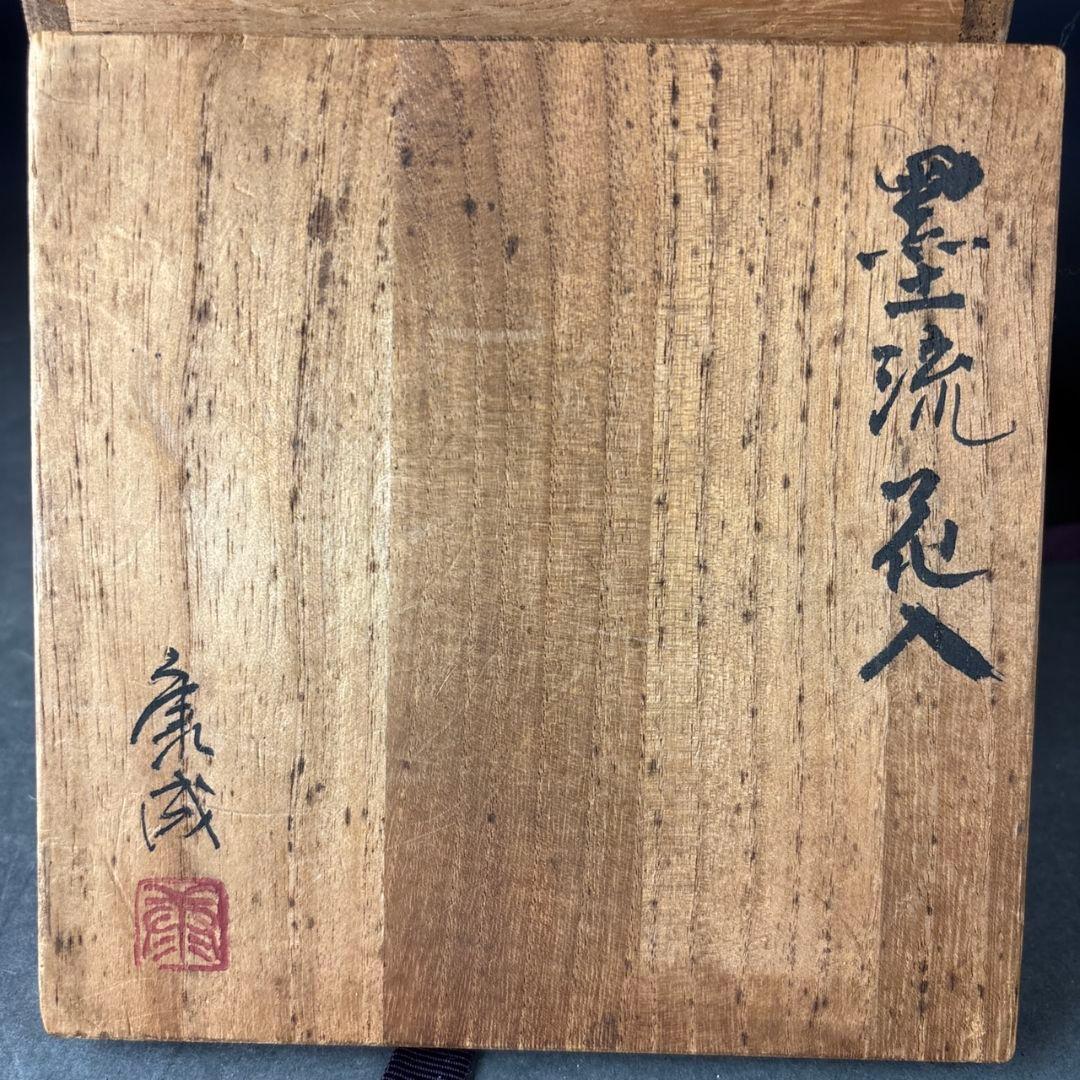 墨流花入
康成